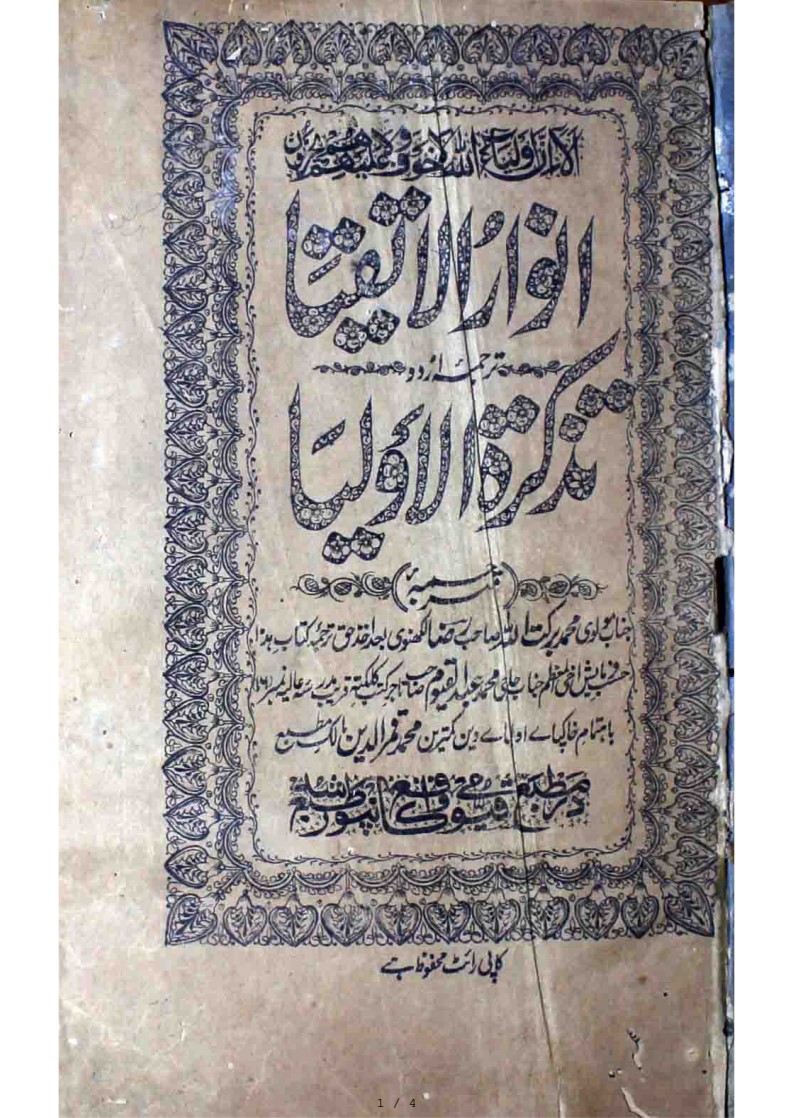 الا ان اولیاء الله لا خوف علیهم ولا هم یحزنون
انوارُ الاتقیا
ترجمۂ اُردو
تذکرۃ الاَولیَا
مترجمہ
جناب مولوی محمد برکت اللہ صاحب رضا لکھنوی بعد اخذ حق ترجمۂ کتاب ہذا
حسب فرمایش اخی معظم جناب حاجی محمد عبد القیوم صاحب تاجر کتب کلکتہ قریب مدرسہ عالیہ نمبر ۱۶
باہتمام خاکپاے اولیاے دین کمترین محمد قمر الدین مالک مطبع
در مطبع قیومی واقع کانپور طبع شد
کاپی رائٹ محفوظ ہے
1 / 4